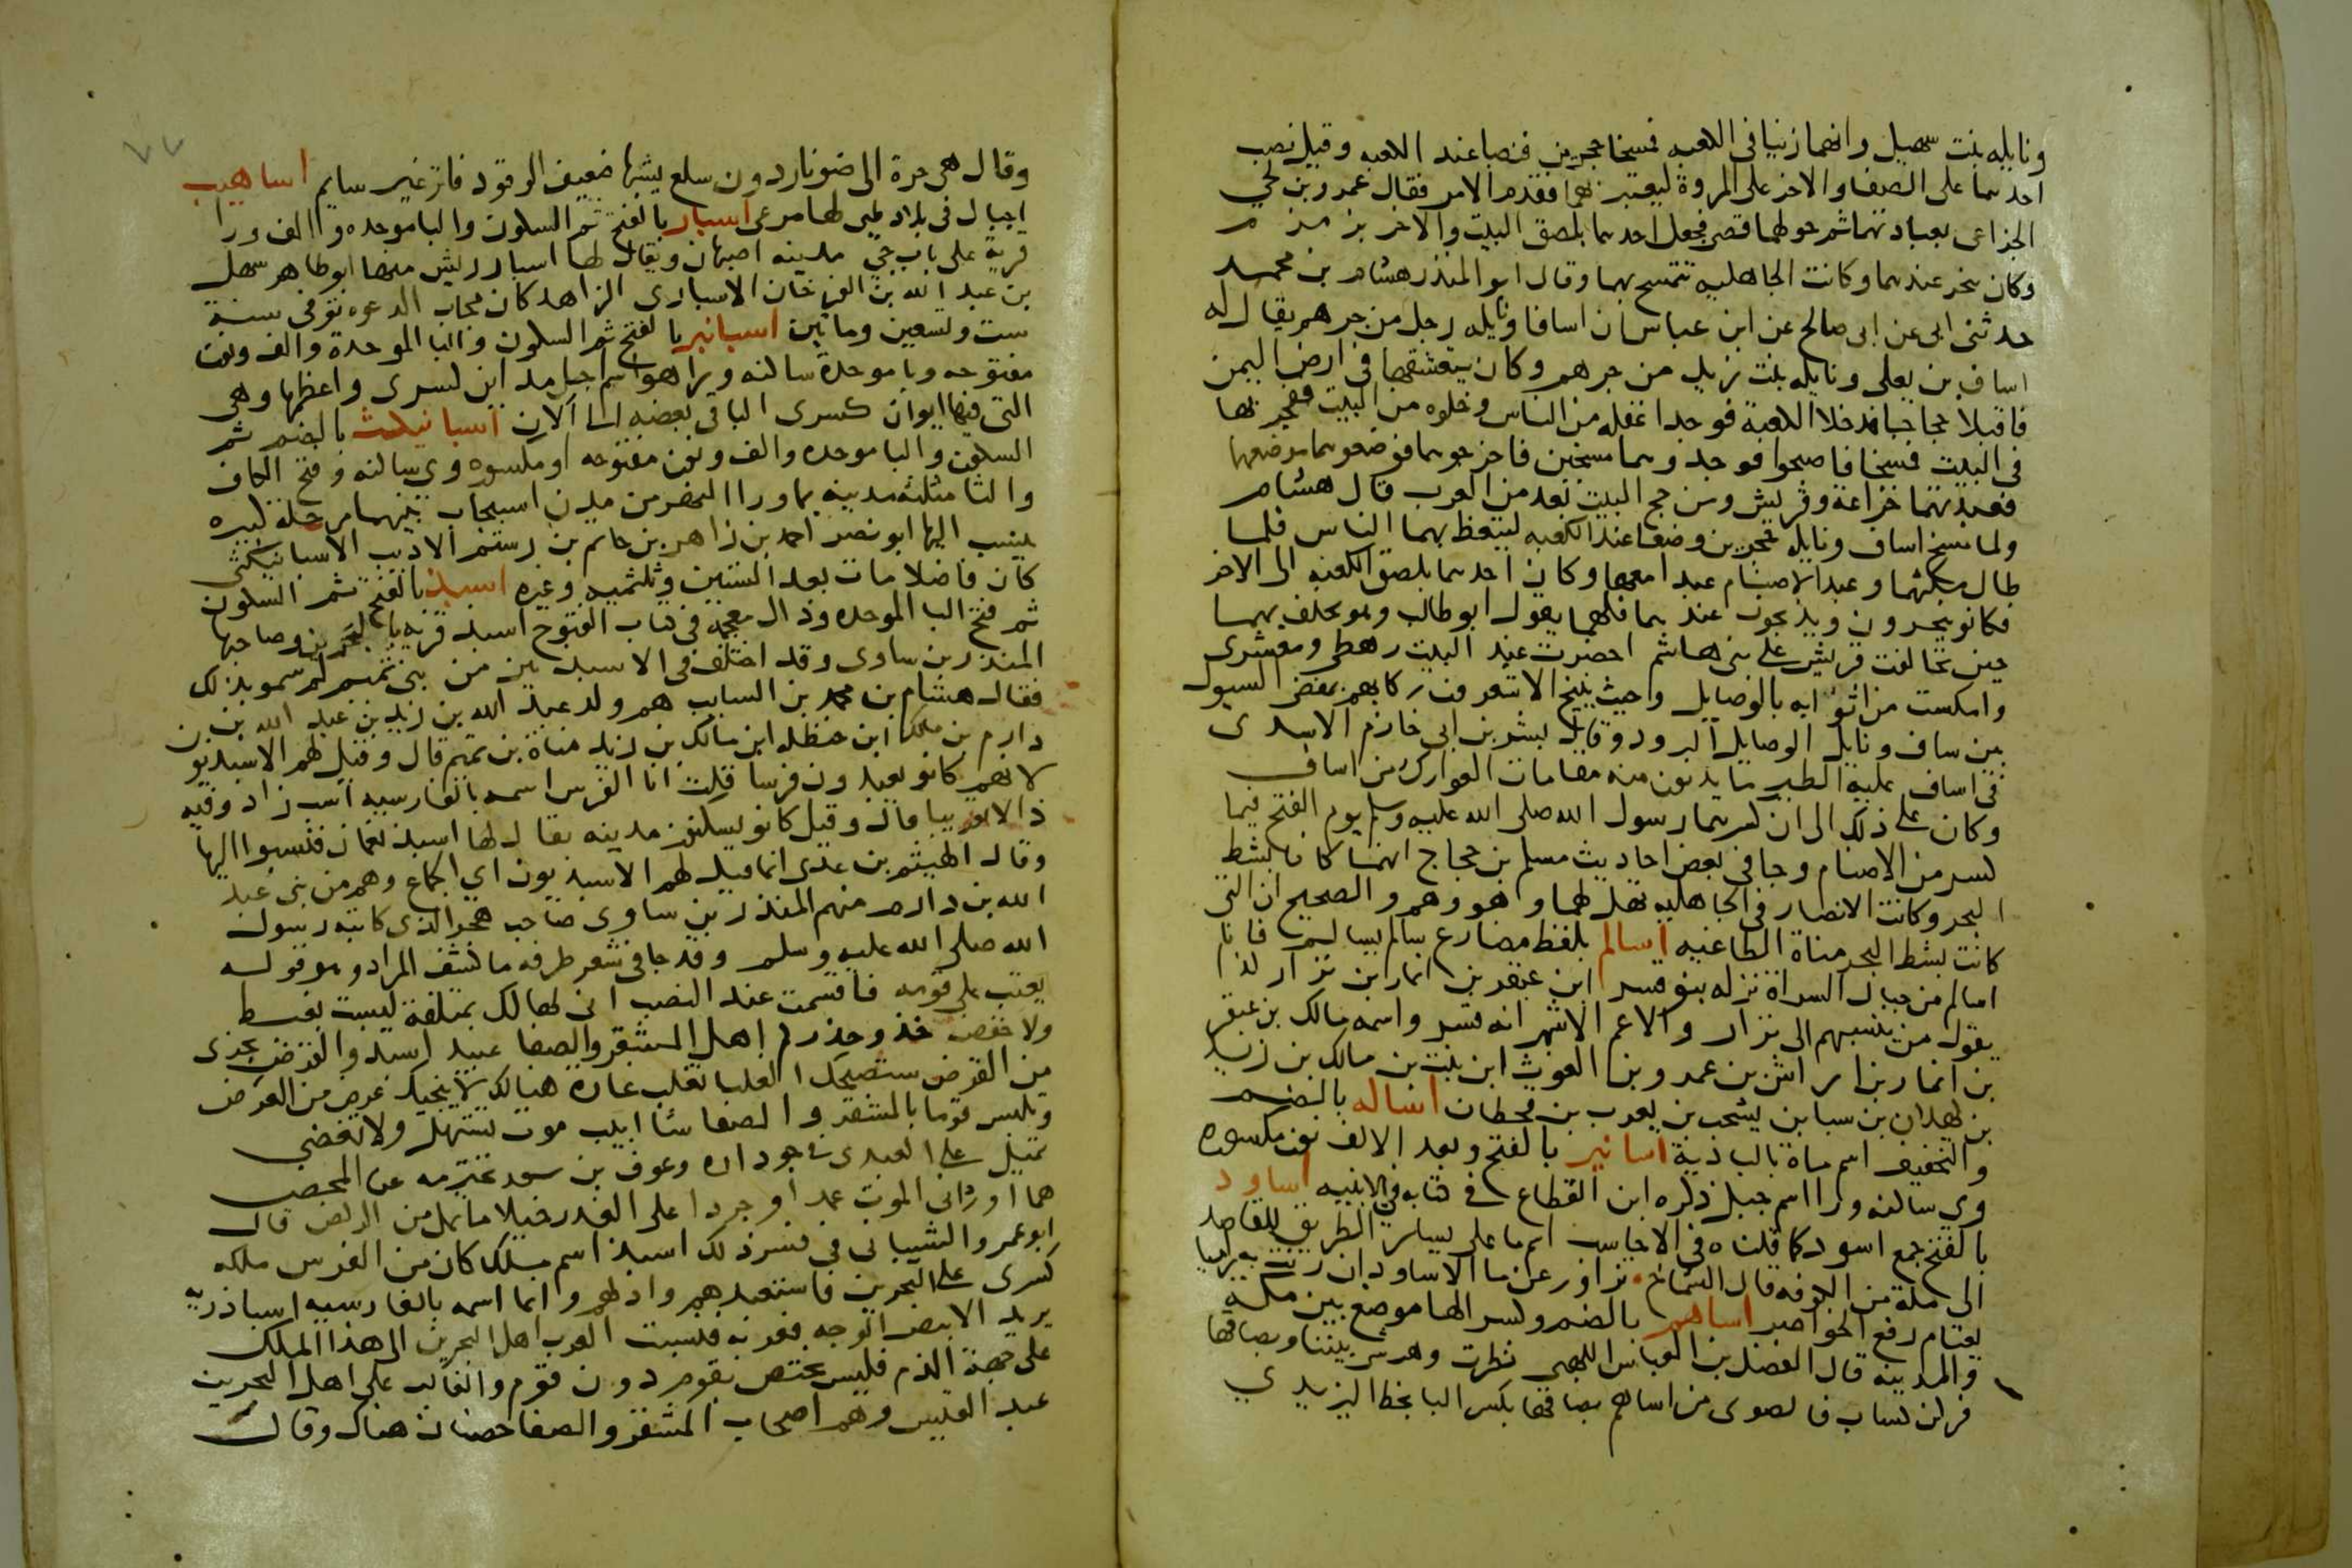 ونايله بنت سهيل وانهما زنيا فى الكعبه فمسخا حجرين فنصبا عند الكعبه وقيل نصب
احدهما على الصفا والاخر على المروة ليعتبر بهما فقدم الامر فقال عمرو بن لحي
الخزاعى بعبادتهما ثم حولهما قصى فجعل احدهما بلصق البيت والاخر بزمزم
وكان ينحر عندهما وكانت الجاهليه تتمسح بهما وقال ابو المنذر هشام بن محمد
حدثنى ابى عن ابى صالح عن ابن عباس ان اسافا ونايله رجل من جرهم يقال له
اساف بن يعلى ونايله بنت زيد من جرهم وكان يتعشقها فى ارض اليمن
فاقبلا حجاجا فدخلا الكعبة فوجدا غفله من الناس وخلوه من البيت ففجر بها
فى البيت فمسخا فاصبحوا فوجدوهما مسخين فاخرجوهما فوضعوهما موضعهما
فعبدتهما خزاعة وقريش ومن حج البيت بعد من العرب قال هشام
ولما مسخ اساف ونايله حجرين وضعا عند الكعبه ليتعظ بهما الناس فلما
طال مكثهما وعبد الاصنام عبدا معها وكان احدهما بلصق الكعبه الى الاخر
فكانو ينحرون ويذبحون عندهما فلهما يقول ابو طالب وهو يحلف بهما
حين تحالفت قريش على بنى هاشم احضرت عند البيت رهطى ومعشرى
وامسكت من اثوابه بالوصايل وحيث ينيخ الاشعرون ركابهم بمفضى السيول
من ساف ونايل الوصايل البرود وقال بشر بن ابى خازم الاسدى
فى اساف عليه الطير ما يدنون منه مقامات العوارك من اساف
وكان على ذلك الى ان كسرهما رسول الله صلى الله عليه وسلم يوم الفتح فيما
كسر من الاصنام وجا فى بعض احاديث مسلم بن حجاج انهما كانا بشط
البحر وكانت الانصار فى الجاهليه تهل لهما وهو وهم والصحيح ان التى
كانت بشط البحر مناة الطاغيه أسالم بلفظ مضارع سالم يسالم فانا
اسالم من جبال السراة نزله بنو قسر ابن عبقر بن انمار ابن نزار كذا
يقول من ينسبهم الى نزار والاعم الاشهر انه قسر واسمه مالك بن عبقر
بن انمار بن اراش بن عمرو بن الغوث ابن نبت بن مالك بن زيد
بن كهلان بن سبا بن يشجب بن يعرب بن قحطان اساله بالضم
والتخفيف اسم ماة بالبادية اسانير بالفتح وبعد الالف نون مكسوره
وى ساكنه ورا اسم جبل ذكره ابن القطاع فى كتابه فى الابنيه اساود
بالفتح جمع اسود كما قلناه فى الاحاسب اسم ما على يسار الطريق للقاصد
الى مكة من الكوفه قال الشماخ تزاور عن ما الاساود ان رات به راميا
يعتام رفع الخواصر اساهم بالضم وكسر الها موضع بين مكة
والمدينه قال الفضل بن العباس اللهبى نظرت وهرشى بيننا وبصاقها
فركن كساب فالصوى من اساهم بصاقها بكسر البا بخط اليزيدي
٧٧
وقال هى حرة الى ضونار دون سلع يشبها ضعيف الوقود فاتر غير سايم اساهيب
اجبال فى بلاد طى لها مرعى اسبار بالفتح ثم السكون والبا موحده والف ورا
قرية على باب جى مدينه اصبهان ويقال لها اسبار ريش منها ابو طاهر سهل
بن عبد الله بن الفرخان الاسبارى الزاهد كان مجاب الدعوه توفى سنة
ست وتسعين وماتين اسبانبر بالفتح ثم السكون والبا الموحدة والف ونون
مفتوحه وبا موحدة ساكنه ورا هو اسم اجل مداين كسرى واعظمها وهى
التى فيها ايوان كسرى الباقى بعضه الى الان اسبانيكث بالضم ثم
السكون والبا موحده والف ونون مفتوحه او مكسوره وى ساكنه وفتح الكاف
والثا مثلثه مدينه بما ورا النهر من مدن اسبيجاب بينهما مرحله كبيره
ينسب اليها ابو نصر احمد بن زاهر بن حاتم بن رستم الاديب الاسبانيكثى
كان فاضلا مات بعد الستين وثلثميه وغيره اسبذ بالفتح ثم السكون
ثم فتح البا الموحده وذال معجمة فى كتاب الفتوح اسبذ قريه بالبحرين وصاحبها
المنذر بن ساوى وقد اختلف فى الاسبذيين من بنى تميم لم سمو بذلك
فقال هشام بن محمد بن السايب هم ولد عبد الله بن زيد بن عبد الله بن
دارم بن مالك ابن حنظله ابن مالك بن زيد مناة بن تميم قال وقيل لهم الاسبذيو
لانهم كانو يعبدون فرسا قلت انا الفرس اسمه بالفارسيه اسب زاد وفيه
ذالا تعريبا قال وقيل كانو يسكنون مدينه يقال لها اسبذ بعمان فنسبوا اليها
وقال الهيثم بن عدى انما قيل لهم الاسبذيون اي الجماع وهم من بنى عبد
الله بن دارم منهم المنذر بن ساوى صاحب هجر الذى كاتبه رسول
الله صلى الله عليه وسلم وقد جا فى شعر طرفه ما كشف المراد وهو قوله
يعتب على قومه فاقسمت عند النصب انى لهالك بمتلفة ليست بغبط
ولا خفض خذو حذركم اهل المشقر والصفا عبيد اسبذ والقرض يجزى
من القرض ستصبحك الغلبا تغلب غارة هنالك لا ينجيك عرض من العرض
وتلبس قوما بالمشقر والصفا شابيب موت تستهل ولا تغضى
تميل على العبدى فى جو داره وعوف بن سعد تخترمه عن المحض
هما اوردانى الموت عمدا وجردا على الغدر خيلا ما تمل من الركض قال
ابو عمرو الشيبانى فى فسر ذلك اسبذ اسم ملك كان من الفرس ملكه
كسرى على البحرين فاستعبدهم واذلهم وانما اسمه بالفارسيه اسباذ ريه
يريد الابيض الوجه فعربه فنسبت العرب اهل البحرين الى هذا الملك
على جهة الذم فليس يختص بقوم دون قوم والغالب على اهل البحرين
عبد القيس وهم اصحاب المشقر والصفا حصنان هناك وقال